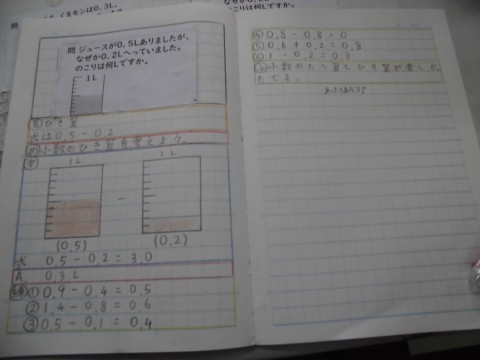 くまモンは0.3L
問 ジュースが0.5Lありましたが、
なぜか0.2Lへっていました。
のこりは何Lですか。
1L
式は0.5-0.2
め 小数のひき算を考えよう。
1L 1L
-
(0.5) (0.2)
式 0.5-0.2=3.0
A 0.3L
① 0.9-0.4=0.5
② 1.4-0.8=0.6
③ 0.5-0.1=0.4
④ 0.8-0.8=0
⑤ 0.6+0.2=0.8
⑥ 1-0.2=0.8
小数のたし算とひき算が